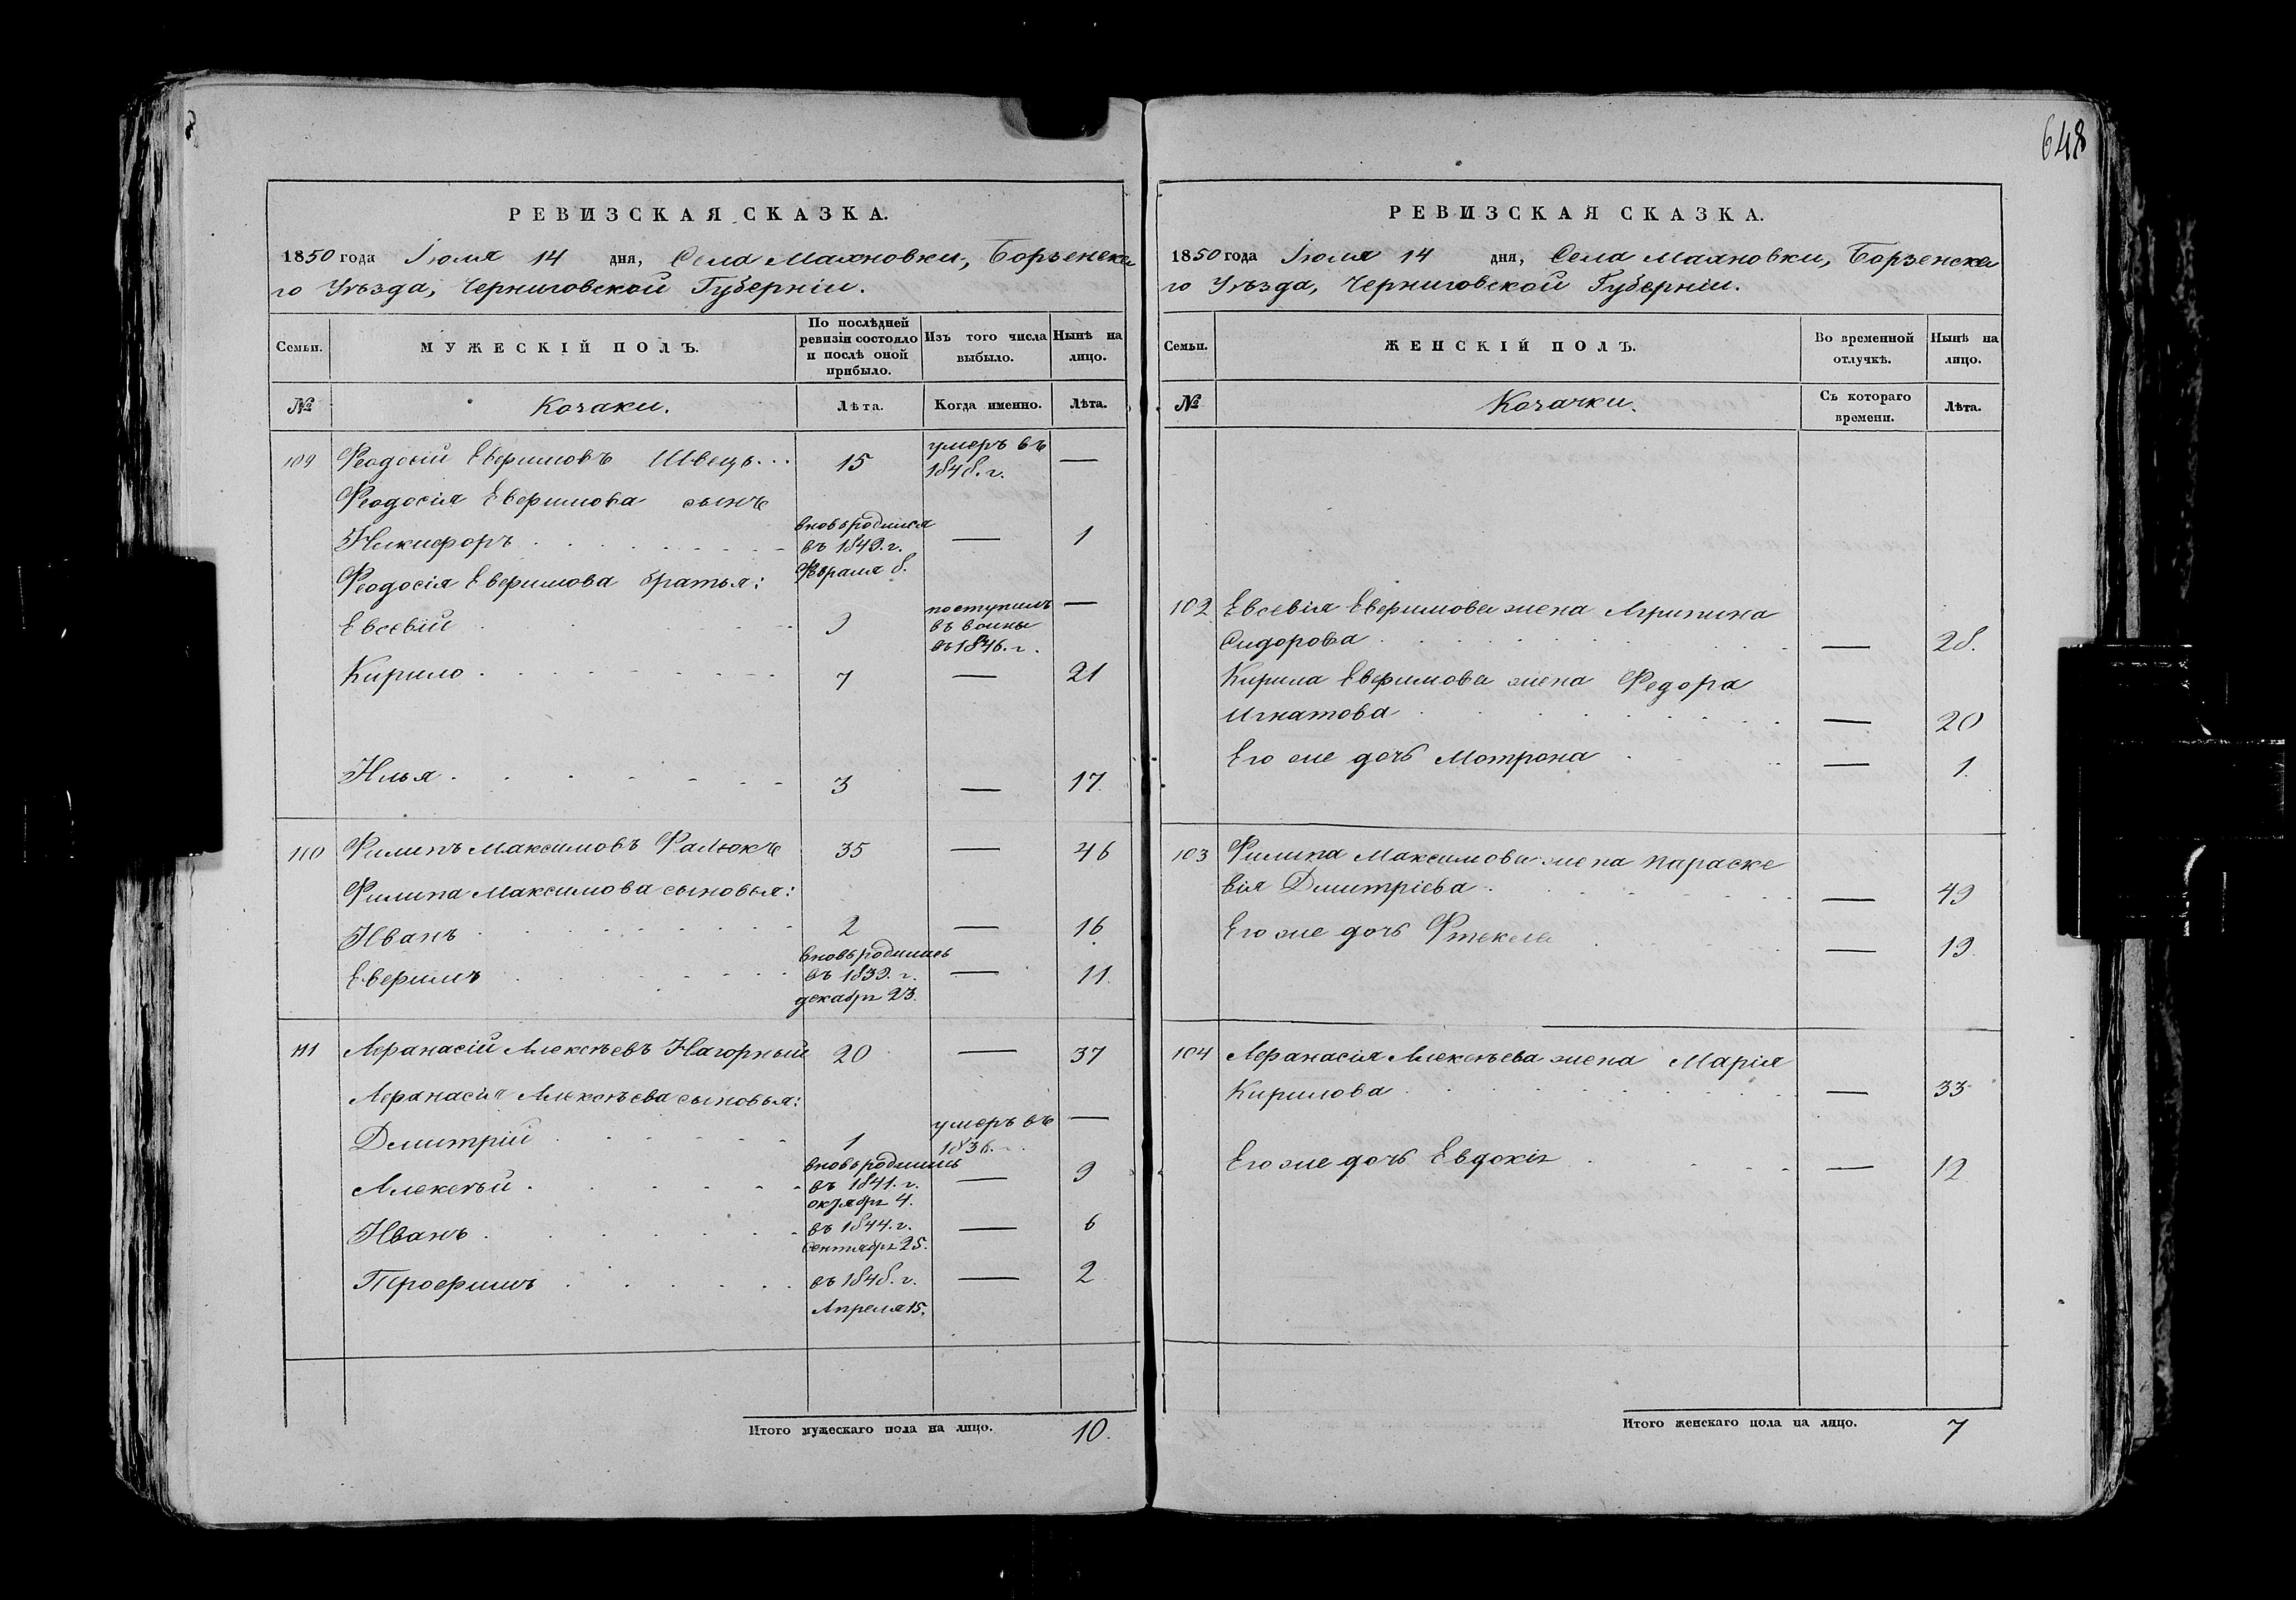 648
РЕВИЗСКАЯ СКАЗКА.
1850 года Іюля 14 дня, Села Маяновки, Борзенска
го Уѣзда, Черниговской Губерніи.
Семьи.
МУЖЕСКІЙ ПОЛЪ.
По послѣдней ревизіи состояло и послѣ оной прибыло.
Изъ того числа выбыло.
Нынѣ на лицо.
№
Козаки.
Лѣта.
Когда именно.
Лѣта.
109 Феодосій Евфимовъ Швецъ... 15 умеръ въ 1848. г. —
Феодосія Евфимова сынъ
Никифоръ вновь родился въ 1849. г. Февраля 8. — 1
Феодосія Евфимова братья:
Евсевій 9 поступилъ въ воины въ 1846. г. —
Кирило 7 — 21
Илья 3 — 17.
110 Филипъ Максимовъ 35 — 46
Филипа Максимова сыновья:
Иванъ 2 — 16
Евфимъ вновь родились въ 1839. г. декабря 23. — 11.
111 Афанасій Алексѣевъ Нагорный 20 — 37
Афанасія Алексѣева сыновья:
Дмитрій 1 умеръ въ 1836. г. —
Алексѣй вновь родились въ 1841. г. октября 4. — 9
Иванъ въ 1844. г. Сентября 25. — 6
Трофимъ въ 1848. г. Апреля 15. — 2
Итого мужескаго пола на лицо. 10.
РЕВИЗСКАЯ СКАЗКА.
1850 года Іюля 14 дня, Села Маяновки, Борзенска
го Уѣзда, Черниговской Губерніи.
Семьи.
ЖЕНСКІЙ ПОЛЪ.
Во временной отлучкѣ.
Нынѣ на лицо.
№
Козачки.
Съ котораго времени.
Лѣта.
102 Евсевія Евфимова жена Агрипина
Сидорова — 28.
Кирила Евфимова жена Федора
Игнатова — 20
Его же дочь Мотрона — 1.
103 Филипа Максимова жена Параске
вія Дмитріева — 49
Его же дочь — 19.
104 Афанасія Алексѣева жена Марія
Кирилова — 33
Его же дочь Евдокія — 12
Итого женскаго пола на лицо. 7